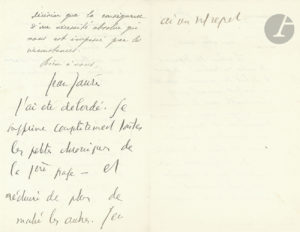 décision que la conséquence
d'une nécessité absolue que
nous est imposée par les
circonstances.
Bien à vous.
Jean Jaurès
J'ai été débordé. Je
supprime complètement toutes
les petites chroniques de
la 1ère page — et
réduire de plus de
moitié les autres. J'ai